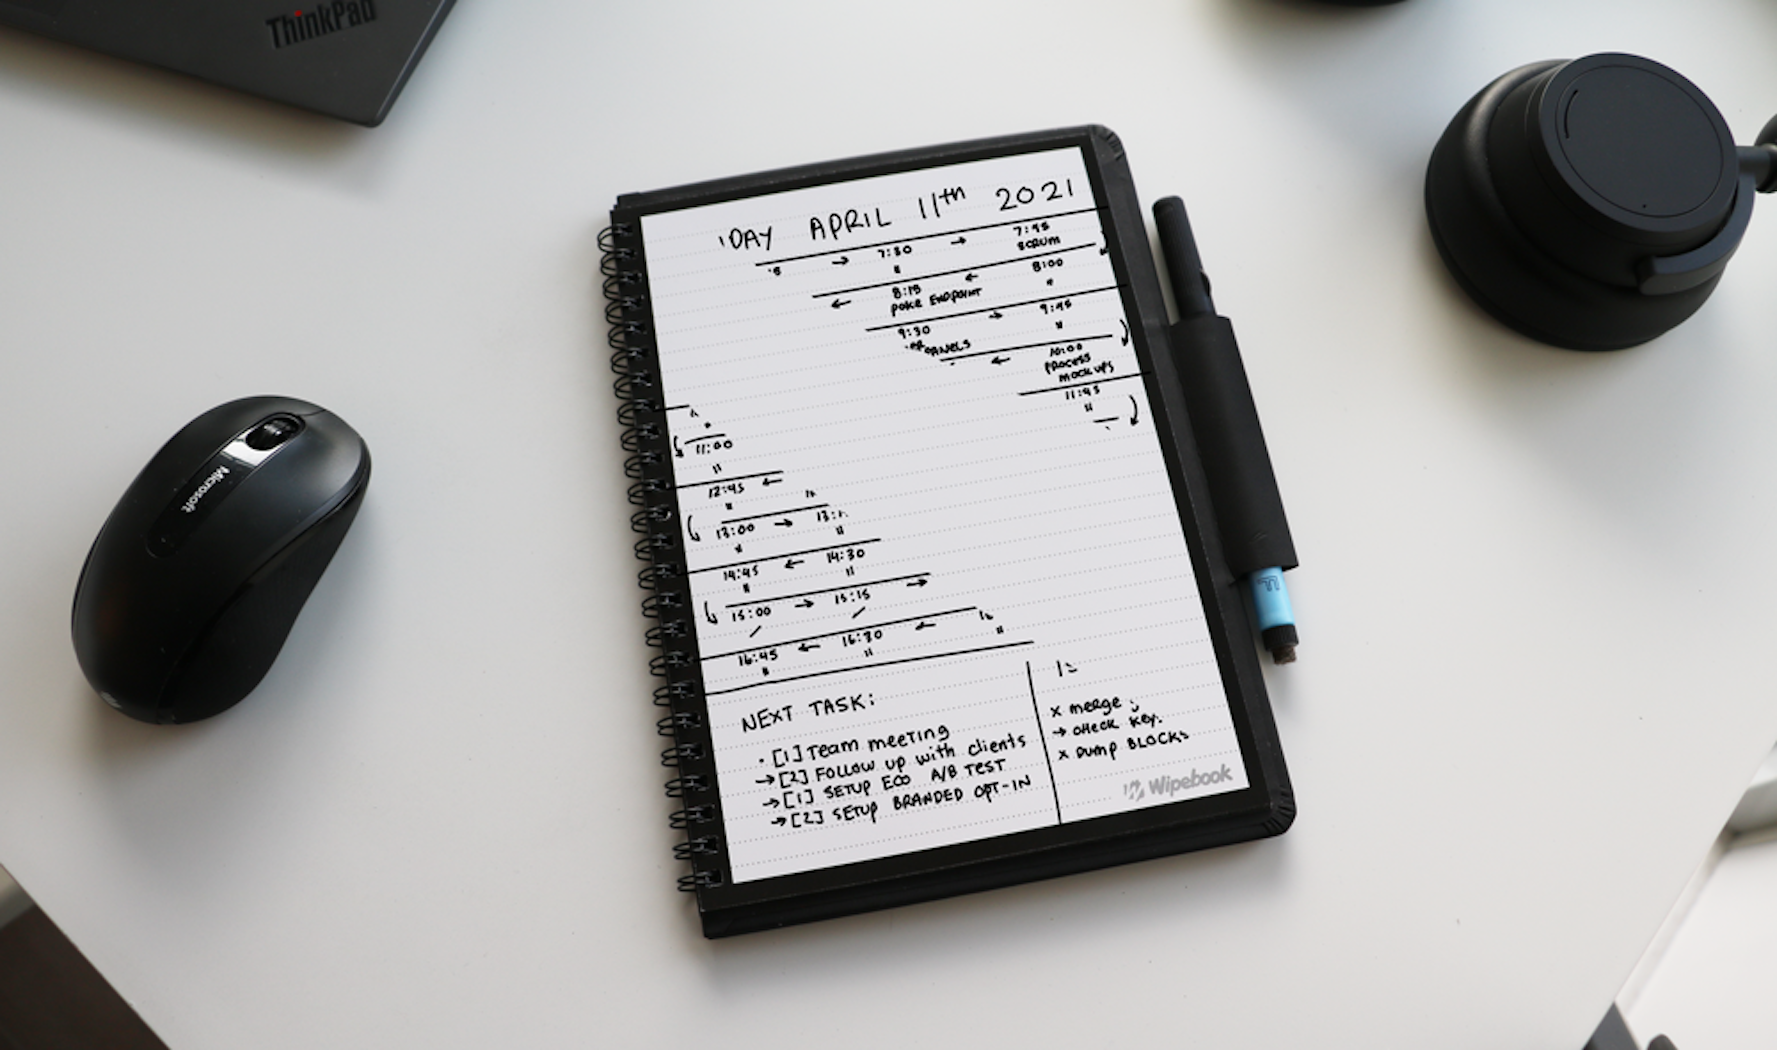 ThinkPad
DAY APRIL 11th 2021
7:30 → 7:45
SCRUM
← 8:15 ← 8:00
POKE ENDPOINT
9:30 → 9:45
PANELS ← 10:00
PROCESS
MOCKUPS
11:45
11:00
12:45 ←
13:00 →
14:45 ← 14:30
15:00 → 15:15 →
16:45 ← 16:30 ←
NEXT TASK:
• [1] Team meeting
→ [2] FOLLOW UP with clients
→ [1] SETUP ECO A/B TEST
→ [2] SETUP BRANDED OPT-IN
x merge
→ CHECK KEY.
x DUMP BLOCKS
Wipebook
Microsoft